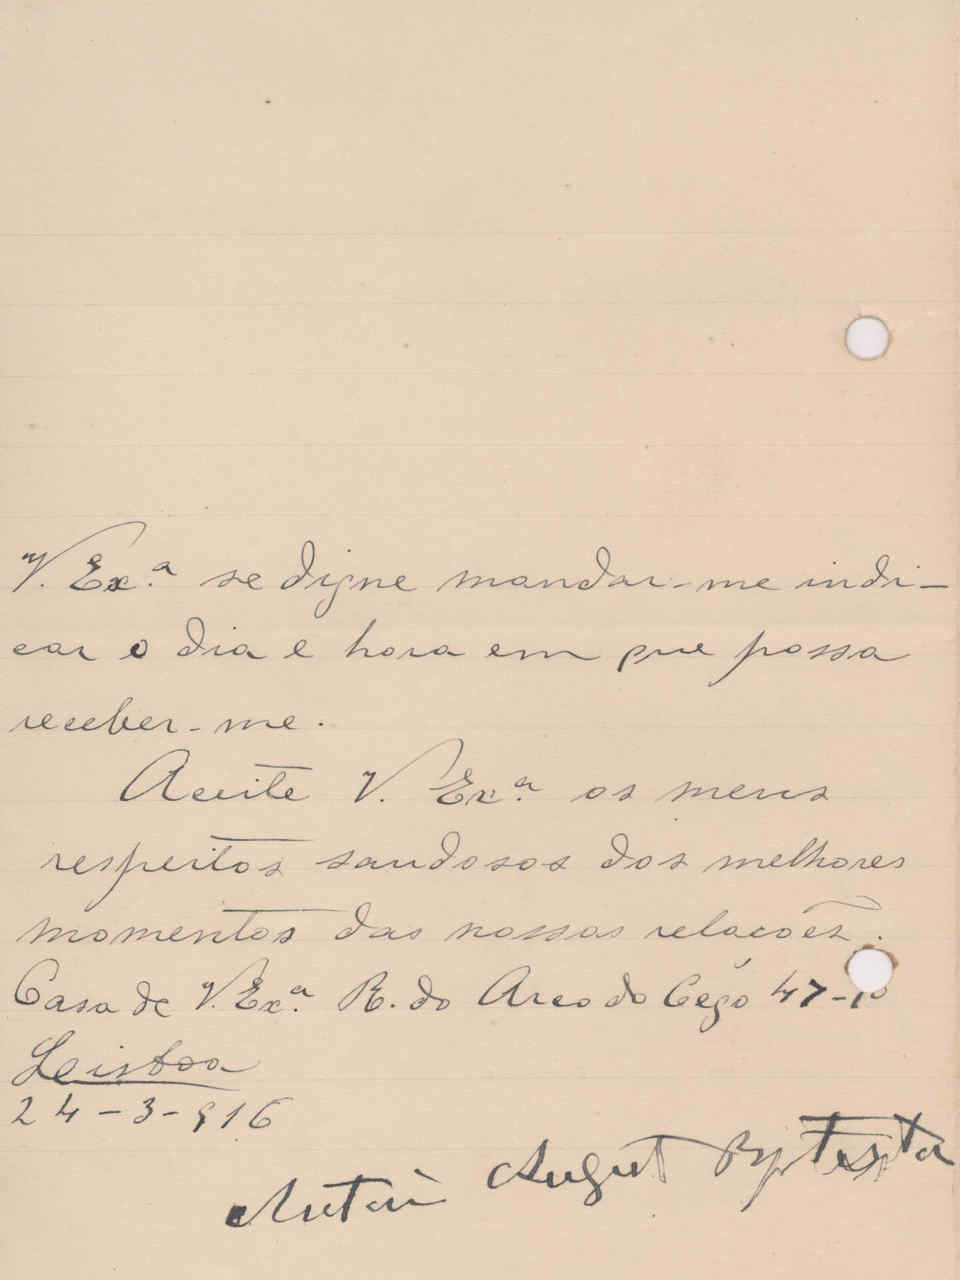 V. Ex.ª se digne mandar-me indi-
car o dia e hora em que possa
receber-me.
Aceite V. Ex.ª os meus
respeitos saudosos dos melhores
momentos das nossas relacões.
Casa de V. Ex.ª R. do Arco do Cégo 47-1º
Lisboa
24-3-916
Antoni August Baptista